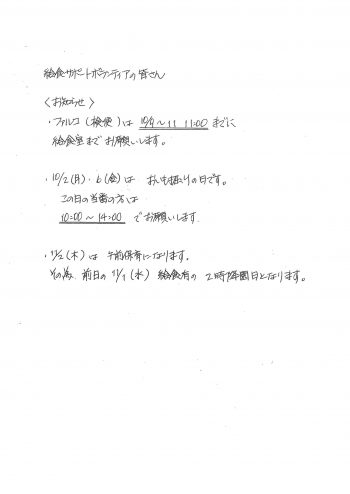 給食サポートボランティアの皆さん
〈お知らせ〉
・ファルコ（検便）は 10/9〜11 11:00 までに
給食室までお願いします。
・10/2（月）・6（金）は おいも掘りの日です。
この日の当番の方は
10:00〜14:00 でお願いします
・11/2（木）は 午前保育になります。
その為、前日の 11/1（水） 給食有の 2時降園日となります。